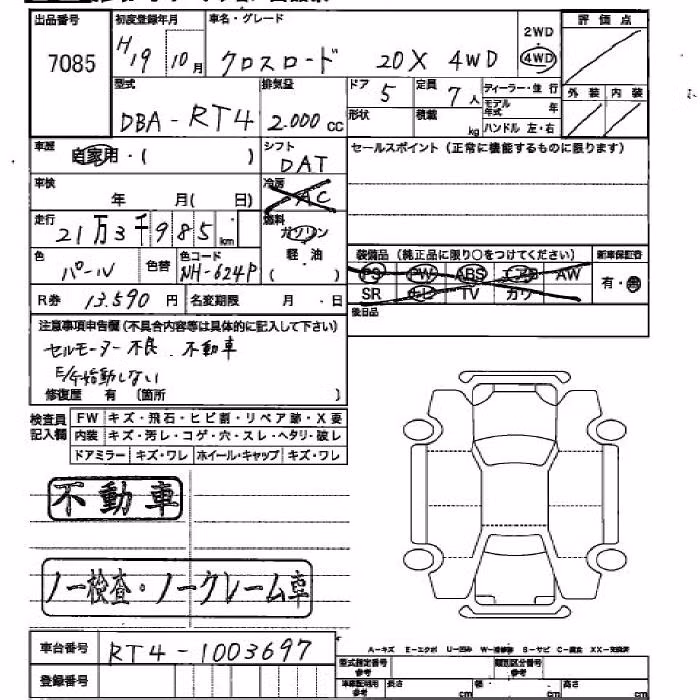 出品番号 初度登録年月 車名・グレード 2WD 評価点
7085 H19 10月 クロスロード 20X 4WD 4WD
型式 排気量 ドア 定員 ディーラー・並行 外装 内装
DBA-RT4 2.000cc 5 7人 モデル年式 年
形状 積載 kg ハンドル 左・右
車歴 自家用・( ) シフト DAT セールスポイント(正常に機能するものに限ります)
車検 年 月( 日) 冷房 AC
走行 21万3千985km 燃料 ガソリン
色 パール 色替 色コード NH-624P 軽油 ( )
装備品(純正品に限り○をつけてください) 新車保証書
PS PW ABS エアB AW 有・無
SR ナビ TV カワ
R券 13.590円 名変期限 月・日
後日品
注意事項申告欄(不具合内容等は具体的に記入して下さい)
セルモーター不良.不動車
E/G始動しない
修復歴 有 〔箇所 〕
検査員記入欄 FW キズ・飛石・ヒビ割・リペア跡・X要
内装 キズ・汚レ・コゲ・穴・スレ・ヘタリ・破レ
ドアミラー キズ・ワレ ホイール・キャップ キズ・ワレ
不動車
ノー検査・ノークレーム車
車台番号 RT4-1003697
登録番号
A-キズ E-エクボ U-凹み W-補修跡 S-サビ C-腐食 XX-交換済
型式指定番号 参考 類別区分番号 参考
車庫証明用 参考 長さ cm 幅 cm 高さ cm